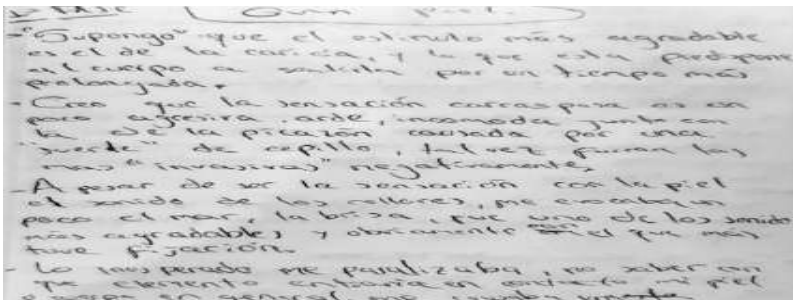 - "Supongo" que el estimulo más agradable
es el de la caricia, y lo que esta predispone
al cuerpo a sentirla por un tiempo más
prolongada.
- Creo que la sensación carrasposa es un
poco agresiva, arde, incomoda junto con
la de la picazón causada por una
"suerte" de cepillo, tal vez fueron las
mas "invasivas" negativamente,
- A pesar de ser la sensación con la piel
el sonido de los collares, me evocaba un
poco el mar, la brisa, fue uno de los sonido
más agradables y obviamente el que más
tuve fijación.
- Lo inesperado me paralizaba, no saber con
que elemento entraria en contacto mi piel
o cuerpo en general me